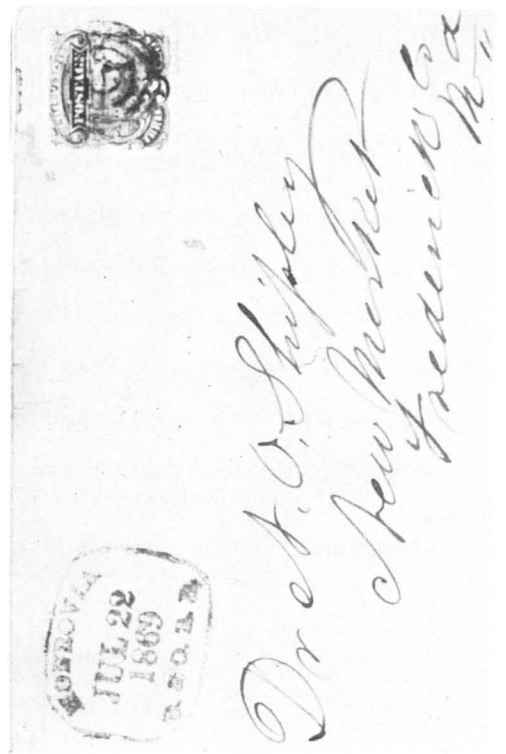 POSTAGE
MONROVIA
JUL 22
1869
B. & O. R. R.
Dr
O. Shipley
New Market
Frederick Co
Md